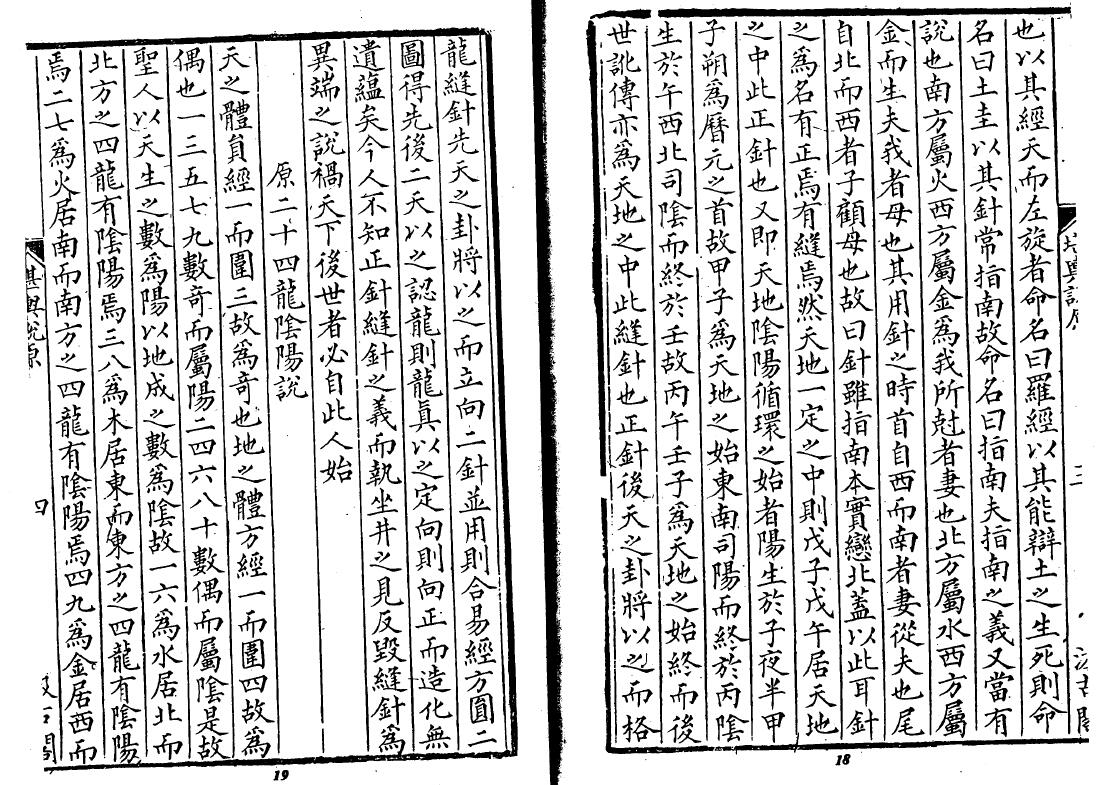 也以其經天而左旋者命名曰羅經以其能辯土之生死則命
名曰土圭以其針常指南故命名曰指南夫指南之義又當有
說也南方屬火西方屬金為我所尅者妻也北方屬水西方屬
金而生夫我者母也其用針之時首自西而南者妻從夫也尾
自北而西者子顧母也故曰針雖指南本實戀北蓋以此耳針
之為名有正焉有縫焉然天地一定之中則戊子戊午居天地
之中此正針也又即天地陰陽循環之始者陽生於子夜半甲
子朔為曆元之首故甲子為天地之始東南司陽而終於丙陰
生於午西北司陰而終於壬故丙午壬子為天地之始終而後
世訛傳亦為天地之中此縫針也正針後天之卦將以之而格
18
龍縫針先天之卦將以之而立向二針並用則合易經方圓二
圖得先後二天以之認龍則龍真以之定向則向正而造化無
遺蘊矣今人不知正針縫針之義而執坐井之見反毀縫針為
異端之說禍天下後世者必自此人始
原二十四龍陰陽說
天之體員經一而圍三故為奇也地之體方經一而圍四故為
偶也一三五七九數奇而屬陽二四六八十數偶而屬陰是故
聖人以天生之數為陽以地成之數為陰故一六為水居北而
北方之四龍有陰陽焉三八為木居東而東方之四龍有陰陽
焉二七為火居南而南方之四龍有陰陽焉四九為金居西而
堪輿說原
四
19